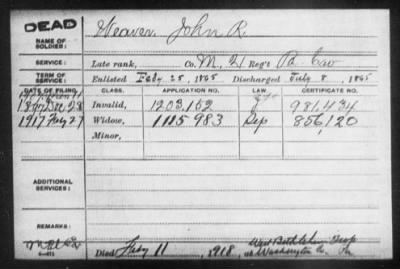 DEAD
NAME OF SOLDIER: Weaver, John R.
SERVICE: Late rank, Co. M, 21 Reg't Pa. Cav
TERM OF SERVICE: Enlisted Feb. 25, 1865 Discharged July 8, 1865
DATE OF FILING. CLASS. APPLICATION NO. LAW. CERTIFICATE NO.
1897 Dec. 28 Invalid, 1203,152 981,434
1917 Widow, 1115 983 856,120
Minor,
ADDITIONAL SERVICES:
REMARKS:
Died 11, 1918, West Bethlehem Twp
at Washington Co. Pa